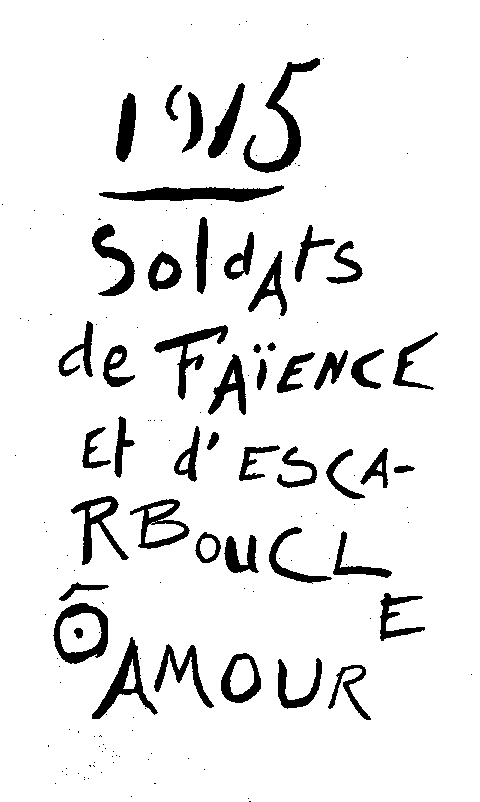 1915
Soldats
de FAÏENCE
Et d'ESCA-
RBOUCLE
Ô AMOUR